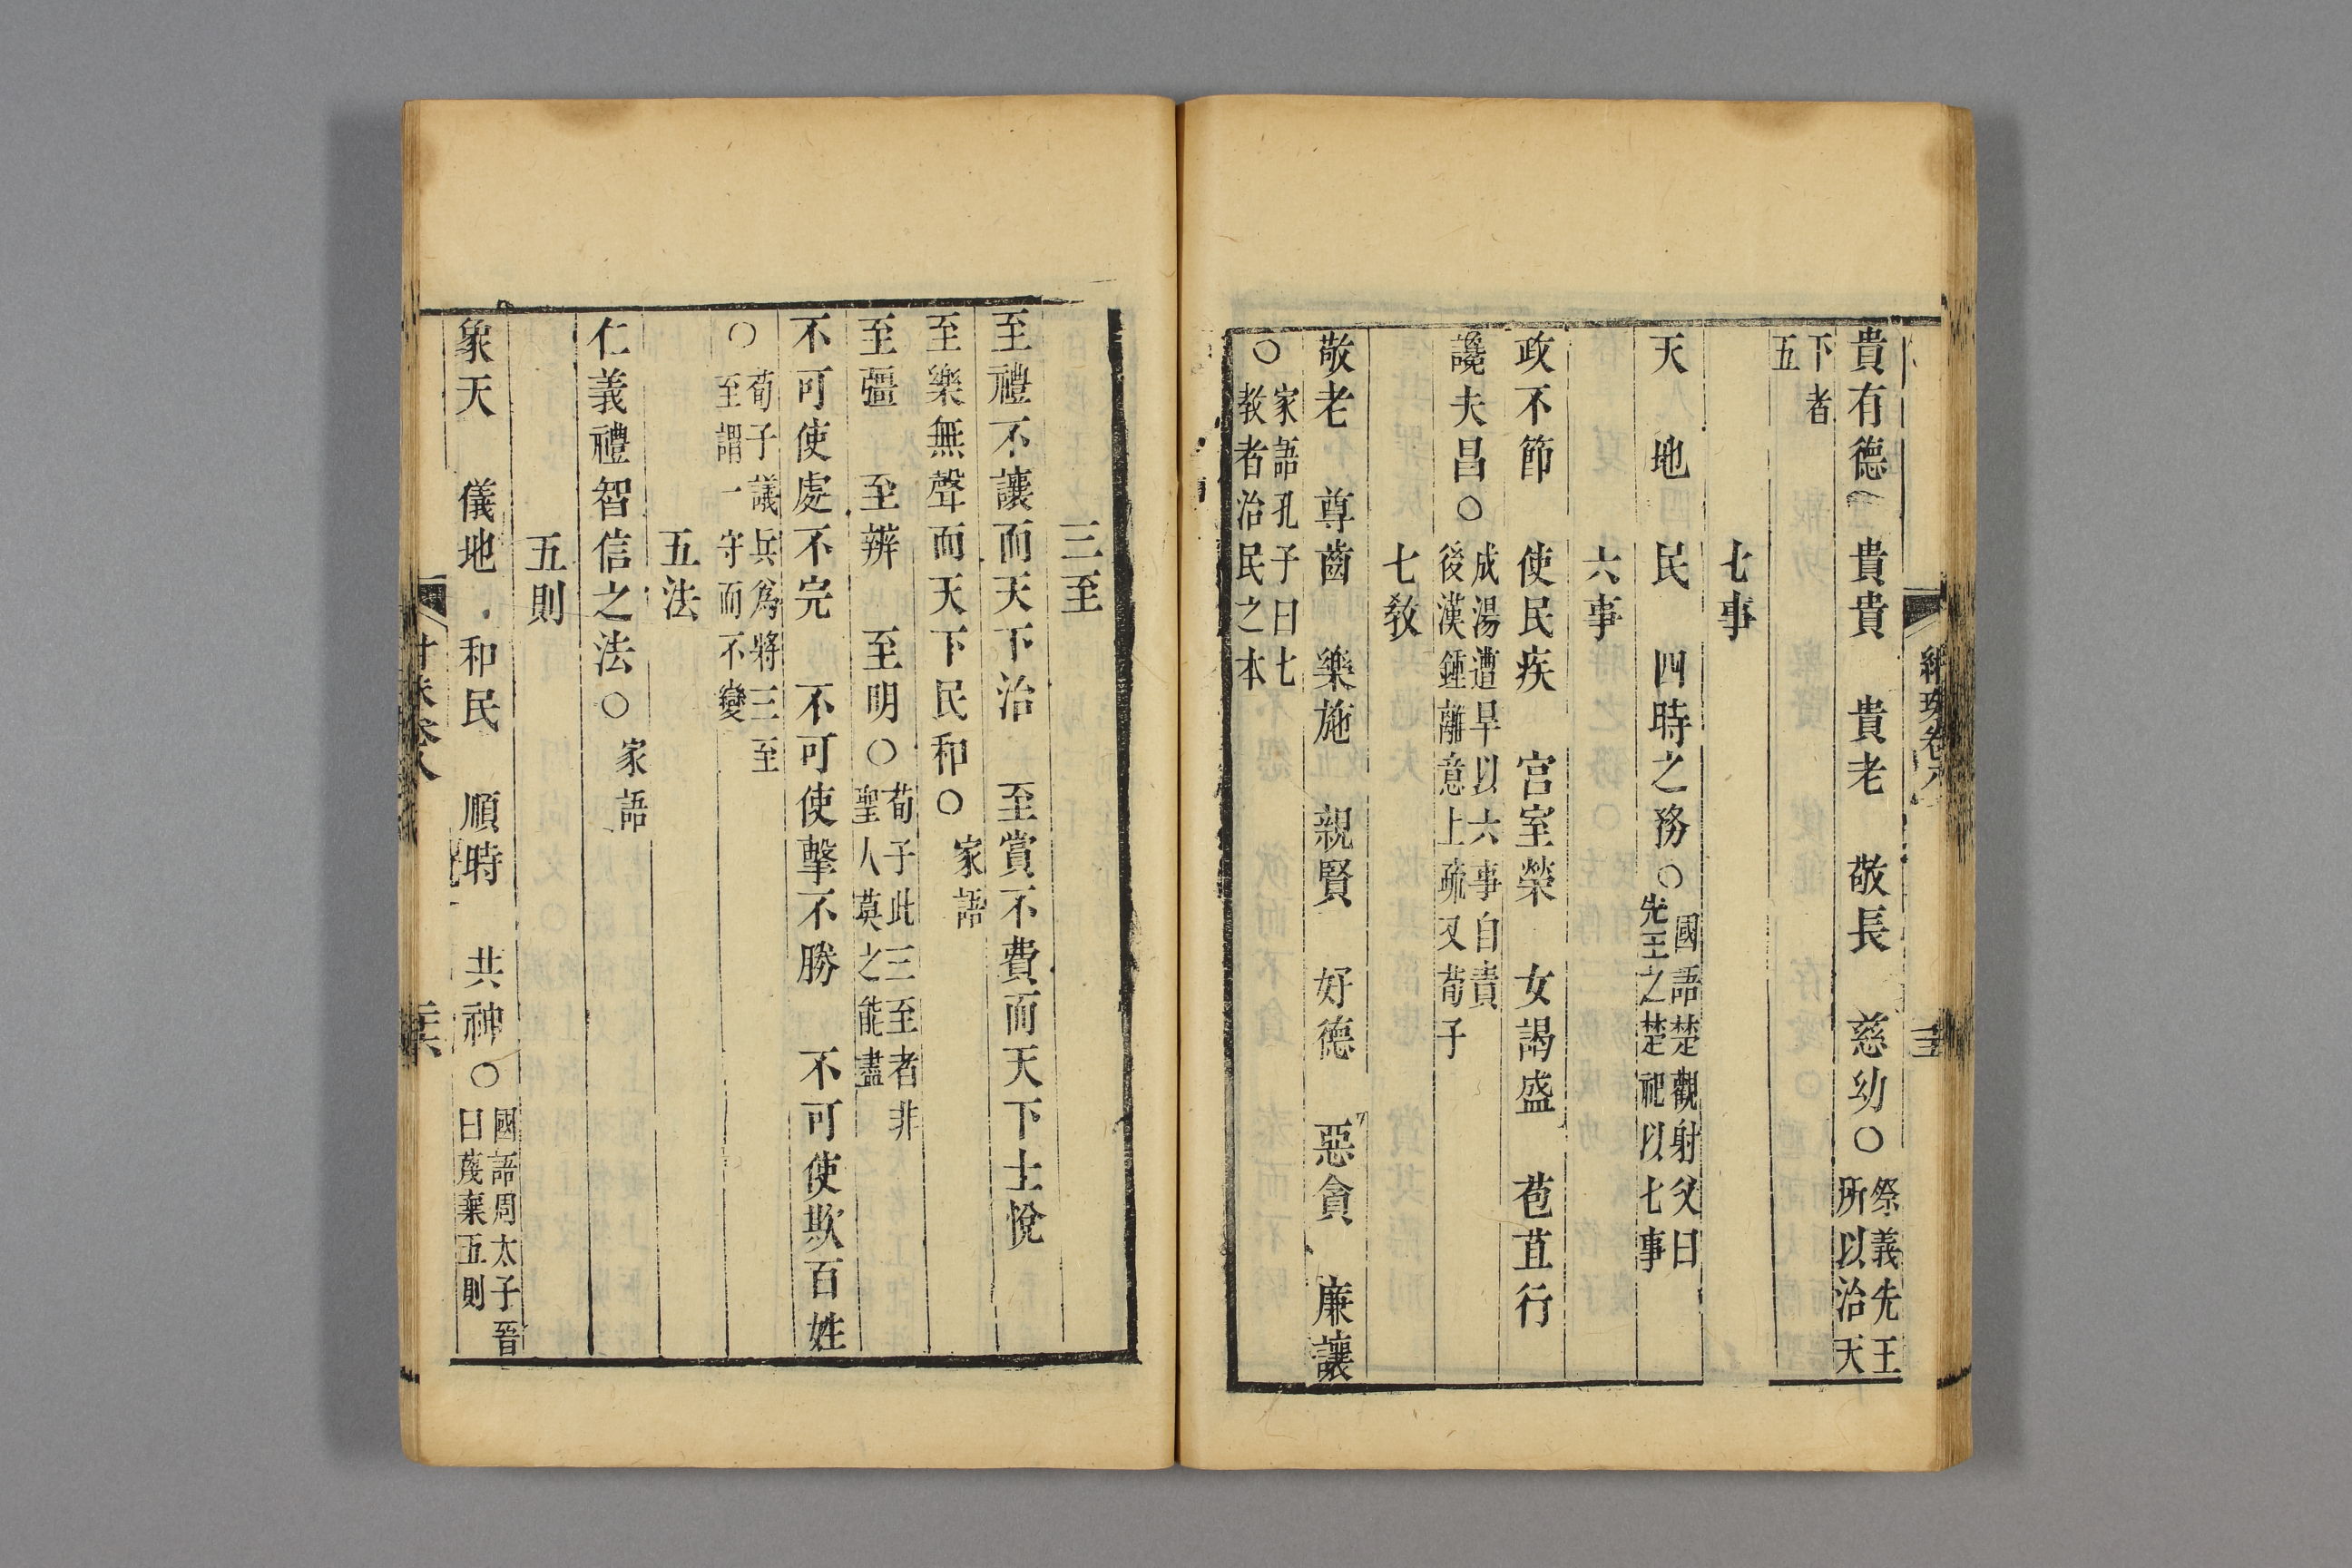 貴有德 貴貴 貴老 敬長 慈幼○祭義先王所以治天
下者五
七事
天 地 民 四時之務○國語楚觀射父曰先王之楚祀以七事
六事
政不節 使民疾 宫室榮 女謁盛 苞苴行
讒夫昌○成湯遭旱以六事自責後漢鍾離意上疏又荀子
七教
敬老 尊齒 樂施 親賢 好德 惡貪 廉讓
○家語孔子曰七教者治民之本
三至
至禮不讓而天下治 至賞不費而天下士悅
至樂無聲而天下民和○家語
至彊 至辨 至明○荀子此三至者非聖人莫之能盡
不可使處不完 不可使擊不勝 不可使欺百姓
○荀子議兵爲將三至至謂一守而不變
五法
仁義禮智信之法○家語
五則
象天 儀地 和民 順時 共神○國語周太子晉曰蔑棄五則